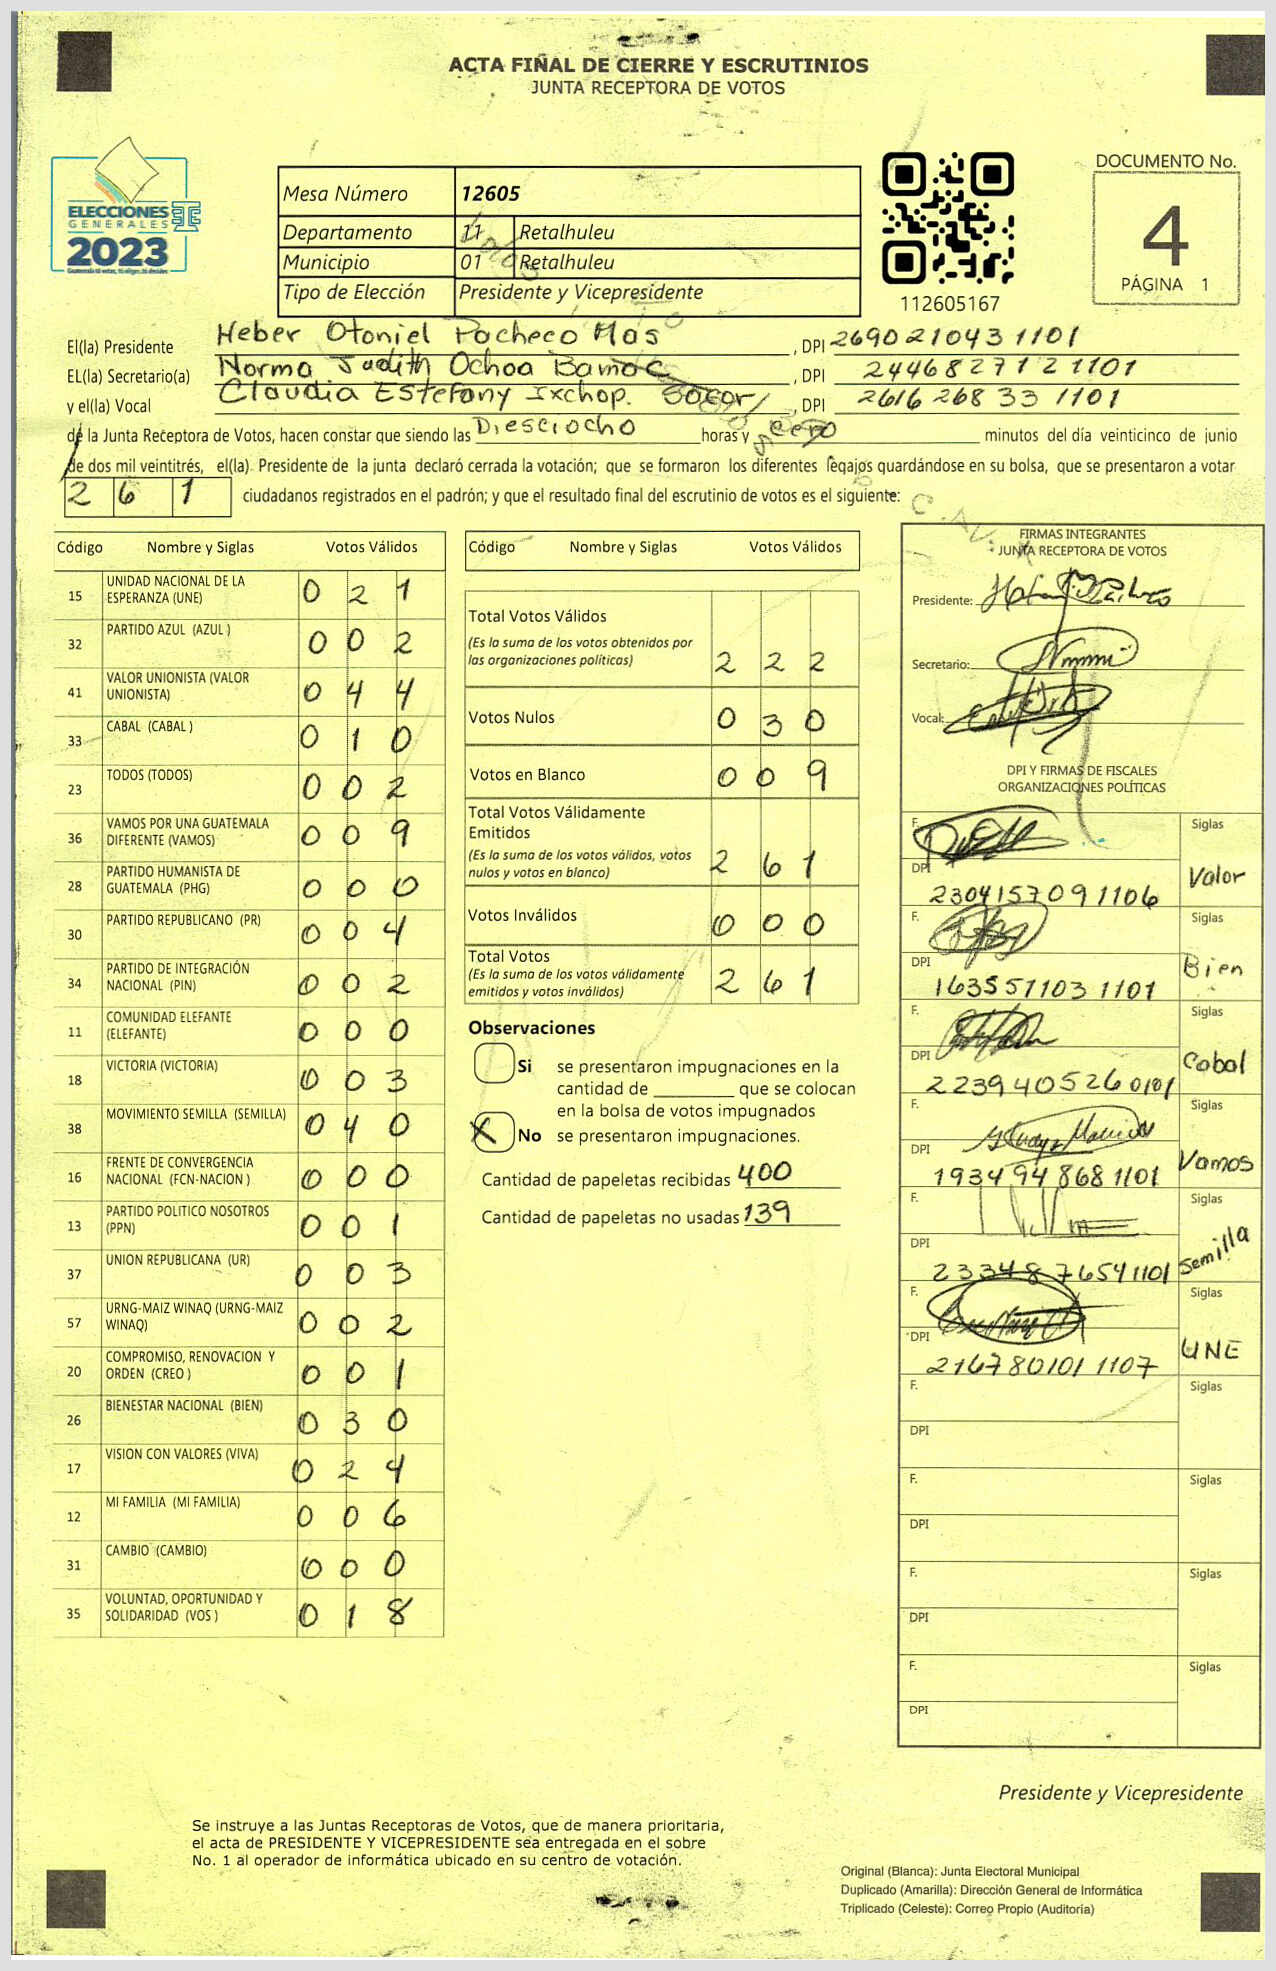 ACTA FINAL DE CIERRE Y ESCRUTINIOS
JUNTA RECEPTORA DE VOTOS
ELECCIONES
GENERALES
2023
Mesa Número 12605
Departamento 11 Retalhuleu
Municipio 01 Retalhuleu
Tipo de Elección Presidente y Vicepresidente
112605167
DOCUMENTO No.
4
PÁGINA 1
El(la) Presidente Heber Otoniel Pacheco Mas , DPI 2690210431101
EL(la) Secretario(a) Norma Judith Ochoa , DPI 2446827121101
y el(la) Vocal Claudia Estefany Ixchop. , DPI 2616268331101
de la Junta Receptora de Votos, hacen constar que siendo las Diesciocho horas y cero minutos del día veinticinco de junio
de dos mil veintitrés, el(la). Presidente de la junta declaró cerrada la votación; que se formaron los diferentes legajos guardándose en su bolsa, que se presentaron a votar
261 ciudadanos registrados en el padrón; y que el resultado final del escrutinio de votos es el siguiente:
Código Nombre y Siglas Votos Válidos
15 UNIDAD NACIONAL DE LA ESPERANZA (UNE) 0 2 1
32 PARTIDO AZUL (AZUL ) 0 0 2
41 VALOR UNIONISTA (VALOR UNIONISTA) 0 4 4
33 CABAL (CABAL ) 0 1 0
23 TODOS (TODOS) 0 0 2
36 VAMOS POR UNA GUATEMALA DIFERENTE (VAMOS) 0 0 9
28 PARTIDO HUMANISTA DE GUATEMALA (PHG) 0 0 0
30 PARTIDO REPUBLICANO (PR) 0 0 4
34 PARTIDO DE INTEGRACIÓN NACIONAL (PIN) 0 0 2
11 COMUNIDAD ELEFANTE (ELEFANTE) 0 0 0
18 VICTORIA (VICTORIA) 0 0 3
38 MOVIMIENTO SEMILLA (SEMILLA) 0 4 0
16 FRENTE DE CONVERGENCIA NACIONAL (FCN-NACION ) 0 0 0
13 PARTIDO POLITICO NOSOTROS (PPN) 0 0 1
37 UNION REPUBLICANA (UR) 0 0 3
57 URNG-MAIZ WINAQ (URNG-MAIZ WINAQ) 0 0 2
20 COMPROMISO, RENOVACION Y ORDEN (CREO ) 0 0 1
26 BIENESTAR NACIONAL (BIEN) 0 3 0
17 VISION CON VALORES (VIVA) 0 2 4
12 MI FAMILIA (MI FAMILIA) 0 0 6
31 CAMBIO (CAMBIO) 0 0 0
35 VOLUNTAD, OPORTUNIDAD Y SOLIDARIDAD (VOS ) 0 1 8
Código Nombre y Siglas Votos Válidos
Total Votos Válidos
(Es la suma de los votos obtenidos por
las organizaciones políticas) 2 2 2
Votos Nulos 0 3 0
Votos en Blanco 0 0 9
Total Votos Válidamente
Emitidos
(Es la suma de los votos válidos, votos
nulos y votos en blanco) 2 6 1
Votos Inválidos 0 0 0
Total Votos
(Es la suma de los votos válidamente
emitidos y votos inválidos) 2 6 1
Observaciones
Si se presentaron impugnaciones en la
cantidad de ________ que se colocan
en la bolsa de votos impugnados
X No se presentaron impugnaciones.
Cantidad de papeletas recibidas 400
Cantidad de papeletas no usadas 139
FIRMAS INTEGRANTES
JUNTA RECEPTORA DE VOTOS
Presidente:
Secretario:
Vocal:
DPI Y FIRMAS DE FISCALES
ORGANIZACIONES POLÍTICAS
F. Siglas
DPI 2304157091106 Valor
F. Siglas
DPI 1635571031101 Bien
F. Siglas
DPI 2239405260101 Cabal
F. Siglas
DPI 1934948681101 Vamos
F. Siglas
DPI 2334876541101 Semilla
F. Siglas
DPI 2167801011107 UNE
F. Siglas
DPI
F. Siglas
DPI
F. Siglas
DPI
F. Siglas
DPI
Presidente y Vicepresidente
Se instruye a las Juntas Receptoras de Votos, que de manera prioritaria,
el acta de PRESIDENTE Y VICEPRESIDENTE sea entregada en el sobre
No. 1 al operador de informática ubicado en su centro de votación.
Original (Blanca): Junta Electoral Municipal
Duplicado (Amarilla): Dirección General de Informática
Triplicado (Celeste): Correo Propio (Auditoria)